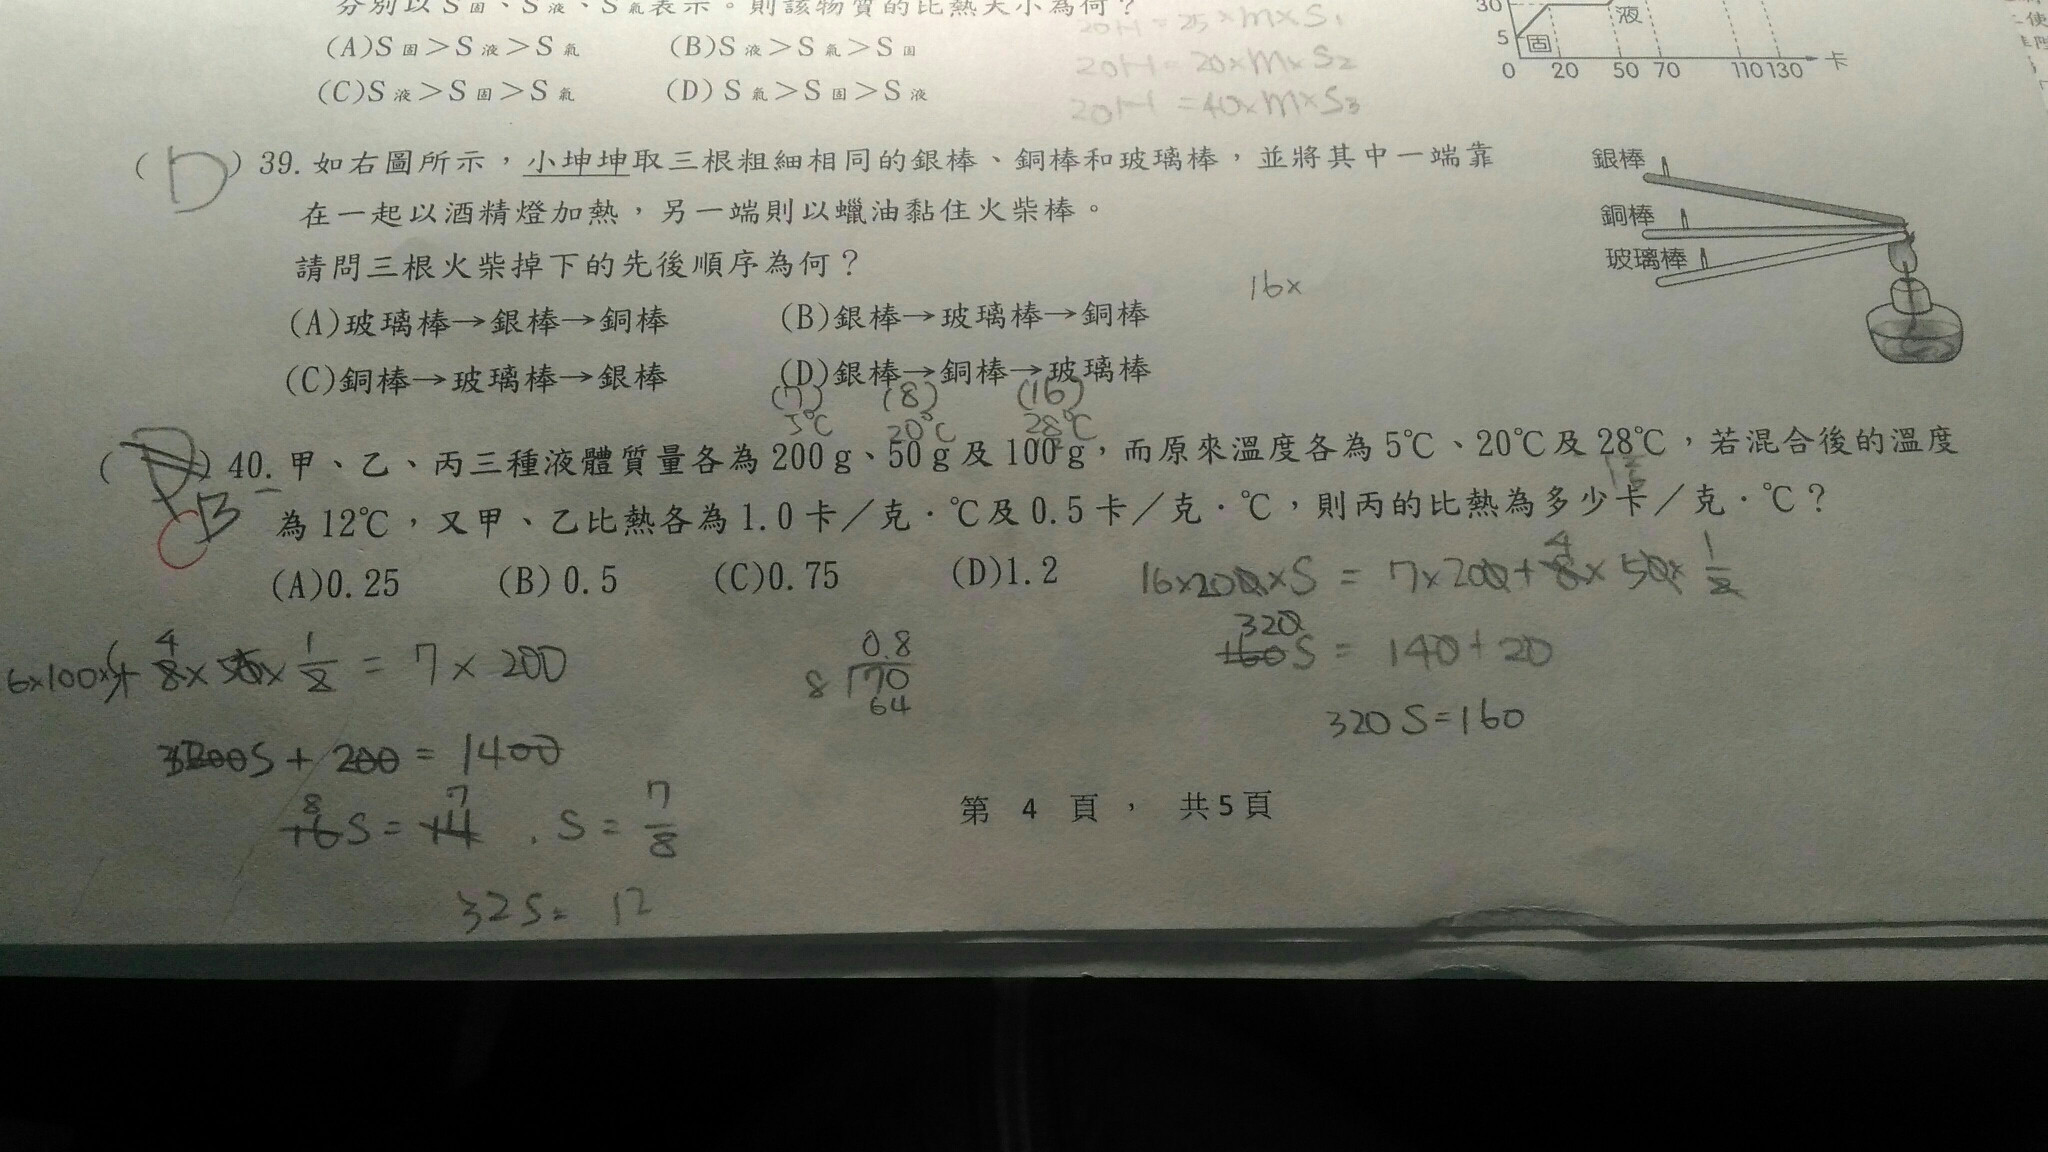 分別以S固、S液、S氣表示。則該物質的比熱大小為何?
(A)S固>S液>S氣 (B)S液>S氣>S固
(C)S液>S固>S氣 (D)S氣>S固>S液
20H=25×m×S1
20H=20×m×S2
20H=40×m×S3
30
5
固
液
0 20 50 70 110 130 卡
(D)39.如右圖所示,小坤坤取三根粗細相同的銀棒、銅棒和玻璃棒,並將其中一端靠
在一起以酒精燈加熱,另一端則以蠟油黏住火柴棒。
請問三根火柴掉下的先後順序為何?
(A)玻璃棒→銀棒→銅棒 (B)銀棒→玻璃棒→銅棒
(C)銅棒→玻璃棒→銀棒 (D)銀棒→銅棒→玻璃棒
銀棒
銅棒
玻璃棒
16×
(7) (8) (16)
5℃ 20℃ 28℃
( B )40.甲、乙、丙三種液體質量各為200g、50g及100g,而原來溫度各為5℃、20℃及28℃,若混合後的溫度
為12℃,又甲、乙比熱各為1.0卡/克.℃及0.5卡/克.℃,則丙的比熱為多少卡/克.℃?
(A)0.25 (B)0.5 (C)0.75 (D)1.2
16×200×S = 7×200+8×50×1/2
4
320
160S = 140+20
320S=160
6×100×S+8×50×1/2 = 7×200
4
S+200=1400
8 7
16S=14 . S=7/8
32S= 12
0.8
8 70
64
第 4 頁 , 共5頁